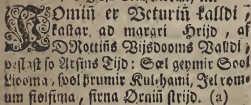 Domiñ er Veturiñ kalldi :
kastar ad margri Hrijd, af
DRottins Vijsdooms Valldi
so Arsins Tijd: Sæl geymir Sool
Liooma, svol Krumir Kulshami, Jel
um fiolfima, firna Orann strijd. (a)